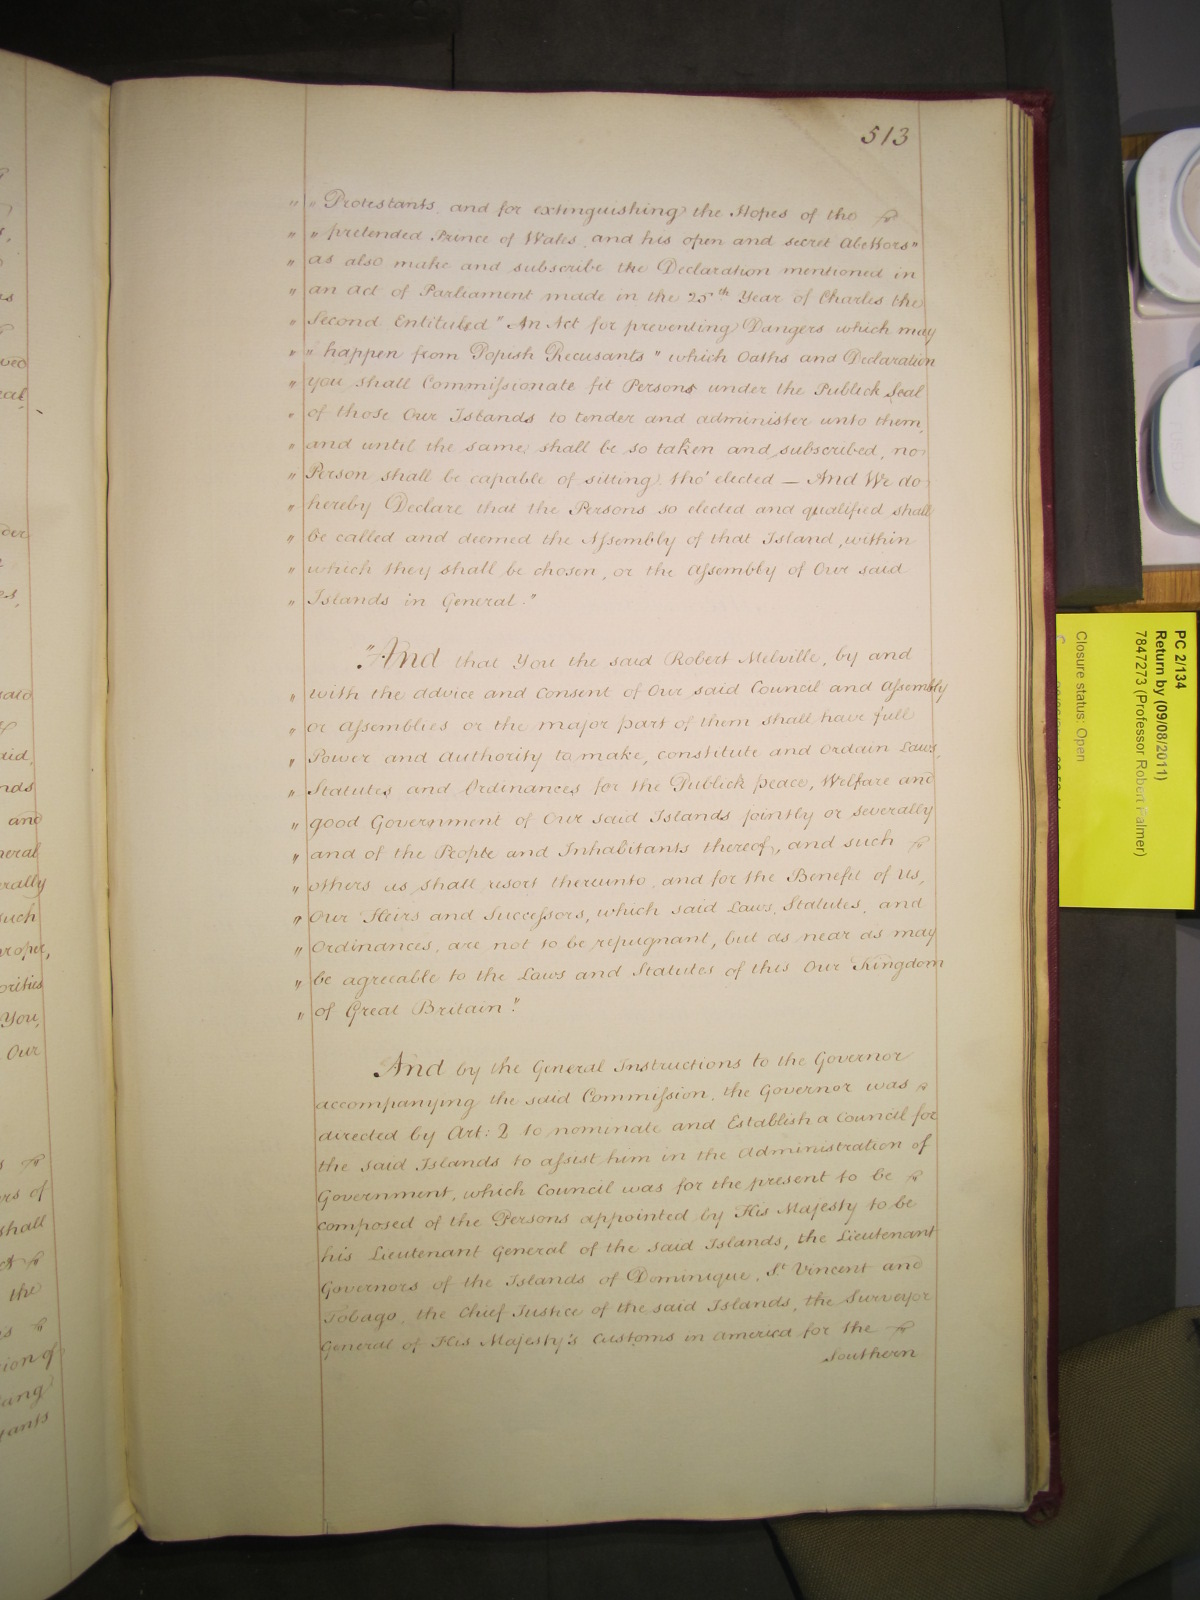 513
" " Protestants, and for extinguishing the Hopes of the
" " pretended Prince of Wales, and his open and secret Abettors"
" as also make and subscribe the Declaration mentioned in
" an Act of Parliament made in the 25th Year of Charles the
" Second Entituled " An Act for preventing Dangers which may
" " happen from Popish Recusants " which Oaths and Declaration
" you shall Commissionate fit Persons under the Publick Seal
" of those Our Islands to tender and administer unto them,
" and until the same shall be so taken and subscribed, no
" Person shall be capable of sitting tho' elected — And We do
" hereby Declare that the Persons so elected and qualified shall
" be called and deemed the Assembly of that Island, within
" which they shall be chosen, or the Assembly of Our said
" Islands in General."
"And that You the said Robert Melville, by and
" with the advice and Consent of Our said Council and Assembly
" or Assemblies or the major part of them shall have full
" Power and Authority to make, constitute and Ordain Laws,
" Statutes and Ordinances for the Publick peace, Welfare and
" good Government of Our said Islands jointly or severally
" and of the People and Inhabitants thereof, and such
" others as shall resort thereunto, and for the Benefit of Us,
" Our Heirs and Successors, which said Laws, Statutes, and
" Ordinances, are not to be repugnant, but as near as may
" be agreeable to the Laws and Statutes of this Our Kingdom
" of Great Britain."
And by the General Instructions to the Governor
accompanying the said Commission, the Governor was
directed by Art: 2 to nominate and Establish a Council for
the said Islands to assist him in the Administration of
Government, which Council was for the present to be
composed of the Persons appointed by His Majesty to be
his Lieutenant General of the said Islands, the Lieutenant
Governors of the Islands of Dominique, St Vincent and
Tobago, the Chief Justice of the said Islands, the Surveyor
General of His Majesty's Customs in America for the
Southern
PC 2/134
Return by (09/08/2011)
7847273 (Professor Robert Palmer)
Closure status: Open